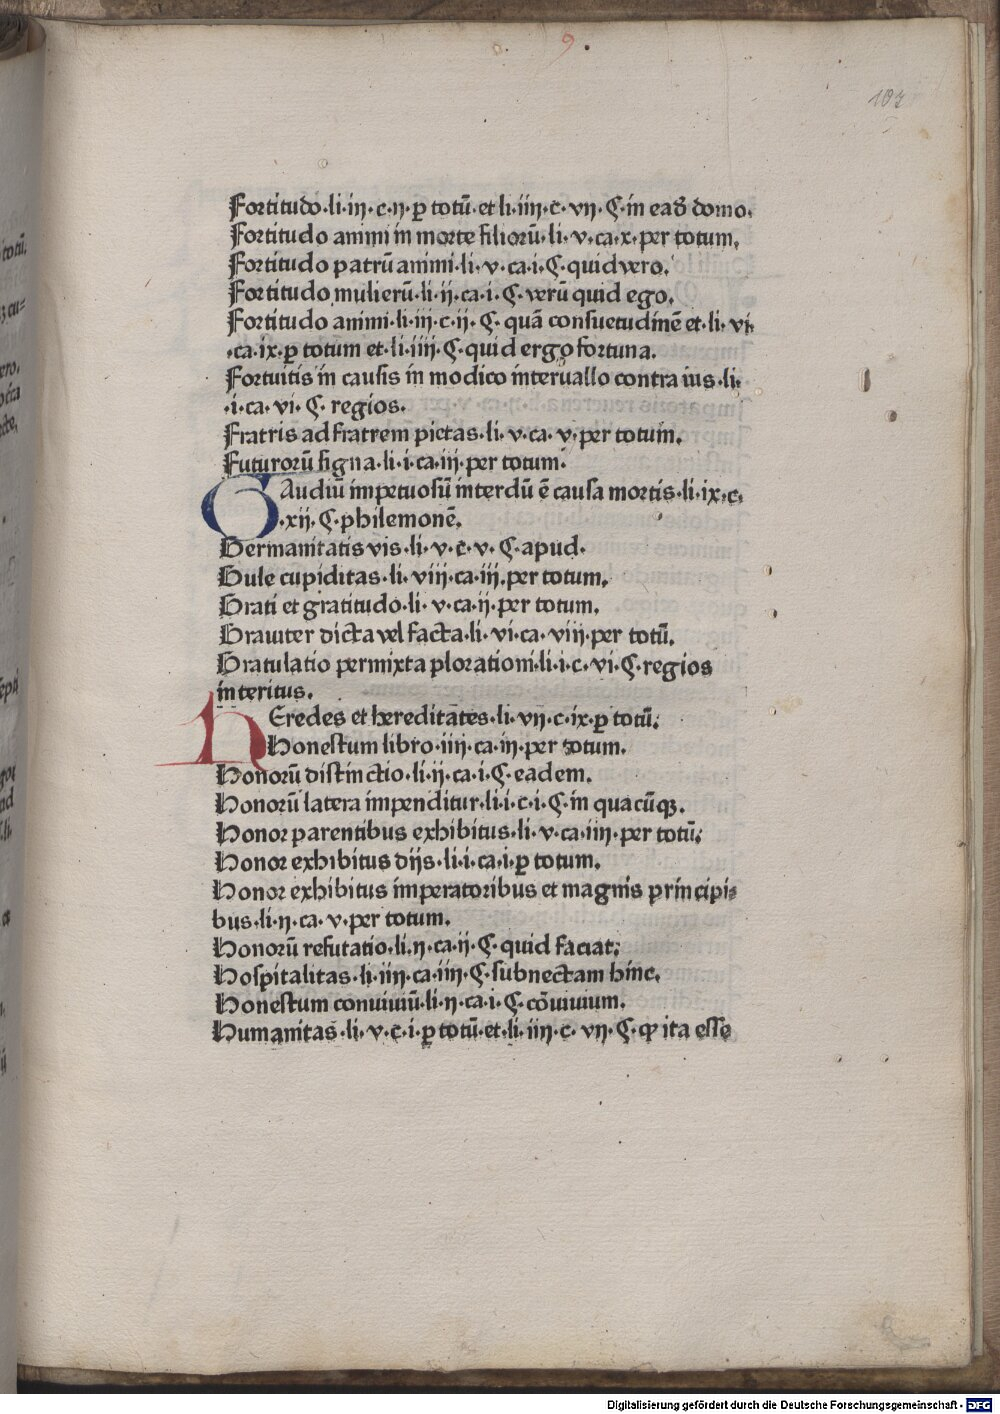 9.
103
Fortitudo·li·iij·c·ij·ꝑ totū·et li·iiij·c·vij·Ꞔ·in eadē domo.
Fortitudo animi in morte filiorū·li·v·ca·x·per totum.
Fortitudo patrū animi·li·v·ca·i·Ꞔ·quid vero.
Fortitudo mulierū·li·ij·ca·i·Ꞔ·verū quid ego.
Fortitudo animi·li·iij·c·ij·Ꞔ·quā consuetudinē et·li·vi·
·ca·ix·ꝑ totum et·li·iiij·Ꞔ·quid ergo fortuna.
Fortuitis in causis in modico interuallo contra ius·li·
·i·ca·vi·Ꞔ·regios.
Fratris ad fratrem pietas·li·v·ca·v·per totum.
Futurorū signa·li·i·ca·iij·per totum.
GAudiū impetuosū interdū ē causa mortis·li·ix·c·
·xij·Ꞔ·philemonē.
Germanitatis vis·li·v·c·v·Ꞔ·apud.
Gule cupiditas·li·viij·ca·iij·per totum.
Grati et gratitudo·li·v·ca·ij·per totum.
Grauiter dicta vel facta·li·vi·ca·viij·per totū.
Gratulatio permixta plorationi·li·i·c·vi·Ꞔ·regios
interitus.
HEredes et hereditates·li·vij·c·ix·ꝑ totū.
Honestum libro·iiij·ca·iij·per totum.
Honorū distinctio·li·ij·ca·i·Ꞔ·eadem.
Honorū latera impenditur·li·i·c·i·Ꞔ·in quacūqꝫ.
Honor parentibus exhibitus·li·v·ca·iiij·per totū.
Honor exhibitus dijs·li·i·ca·i·ꝑ totum.
Honor exhibitus imperatoribus et magnis principi⸗
bus·li·ij·ca·v·per totum.
Honorū refutatio·li·ij·ca·ij·Ꞔ·quid faciat.
Hospitalitas·li·iiij·ca·iiij·Ꞔ·subnectam hinc.
Honestum conuiuiū·li·ij·ca·i·Ꞔ·cōuiuium.
Humanitas·li·v·c·i·ꝑ totū·et·li·iiij·c·vij·Ꞔ·ꝙ ita esse
Digitalisierung gefördert durch die Deutsche Forschungsgemeinschaft - DFG